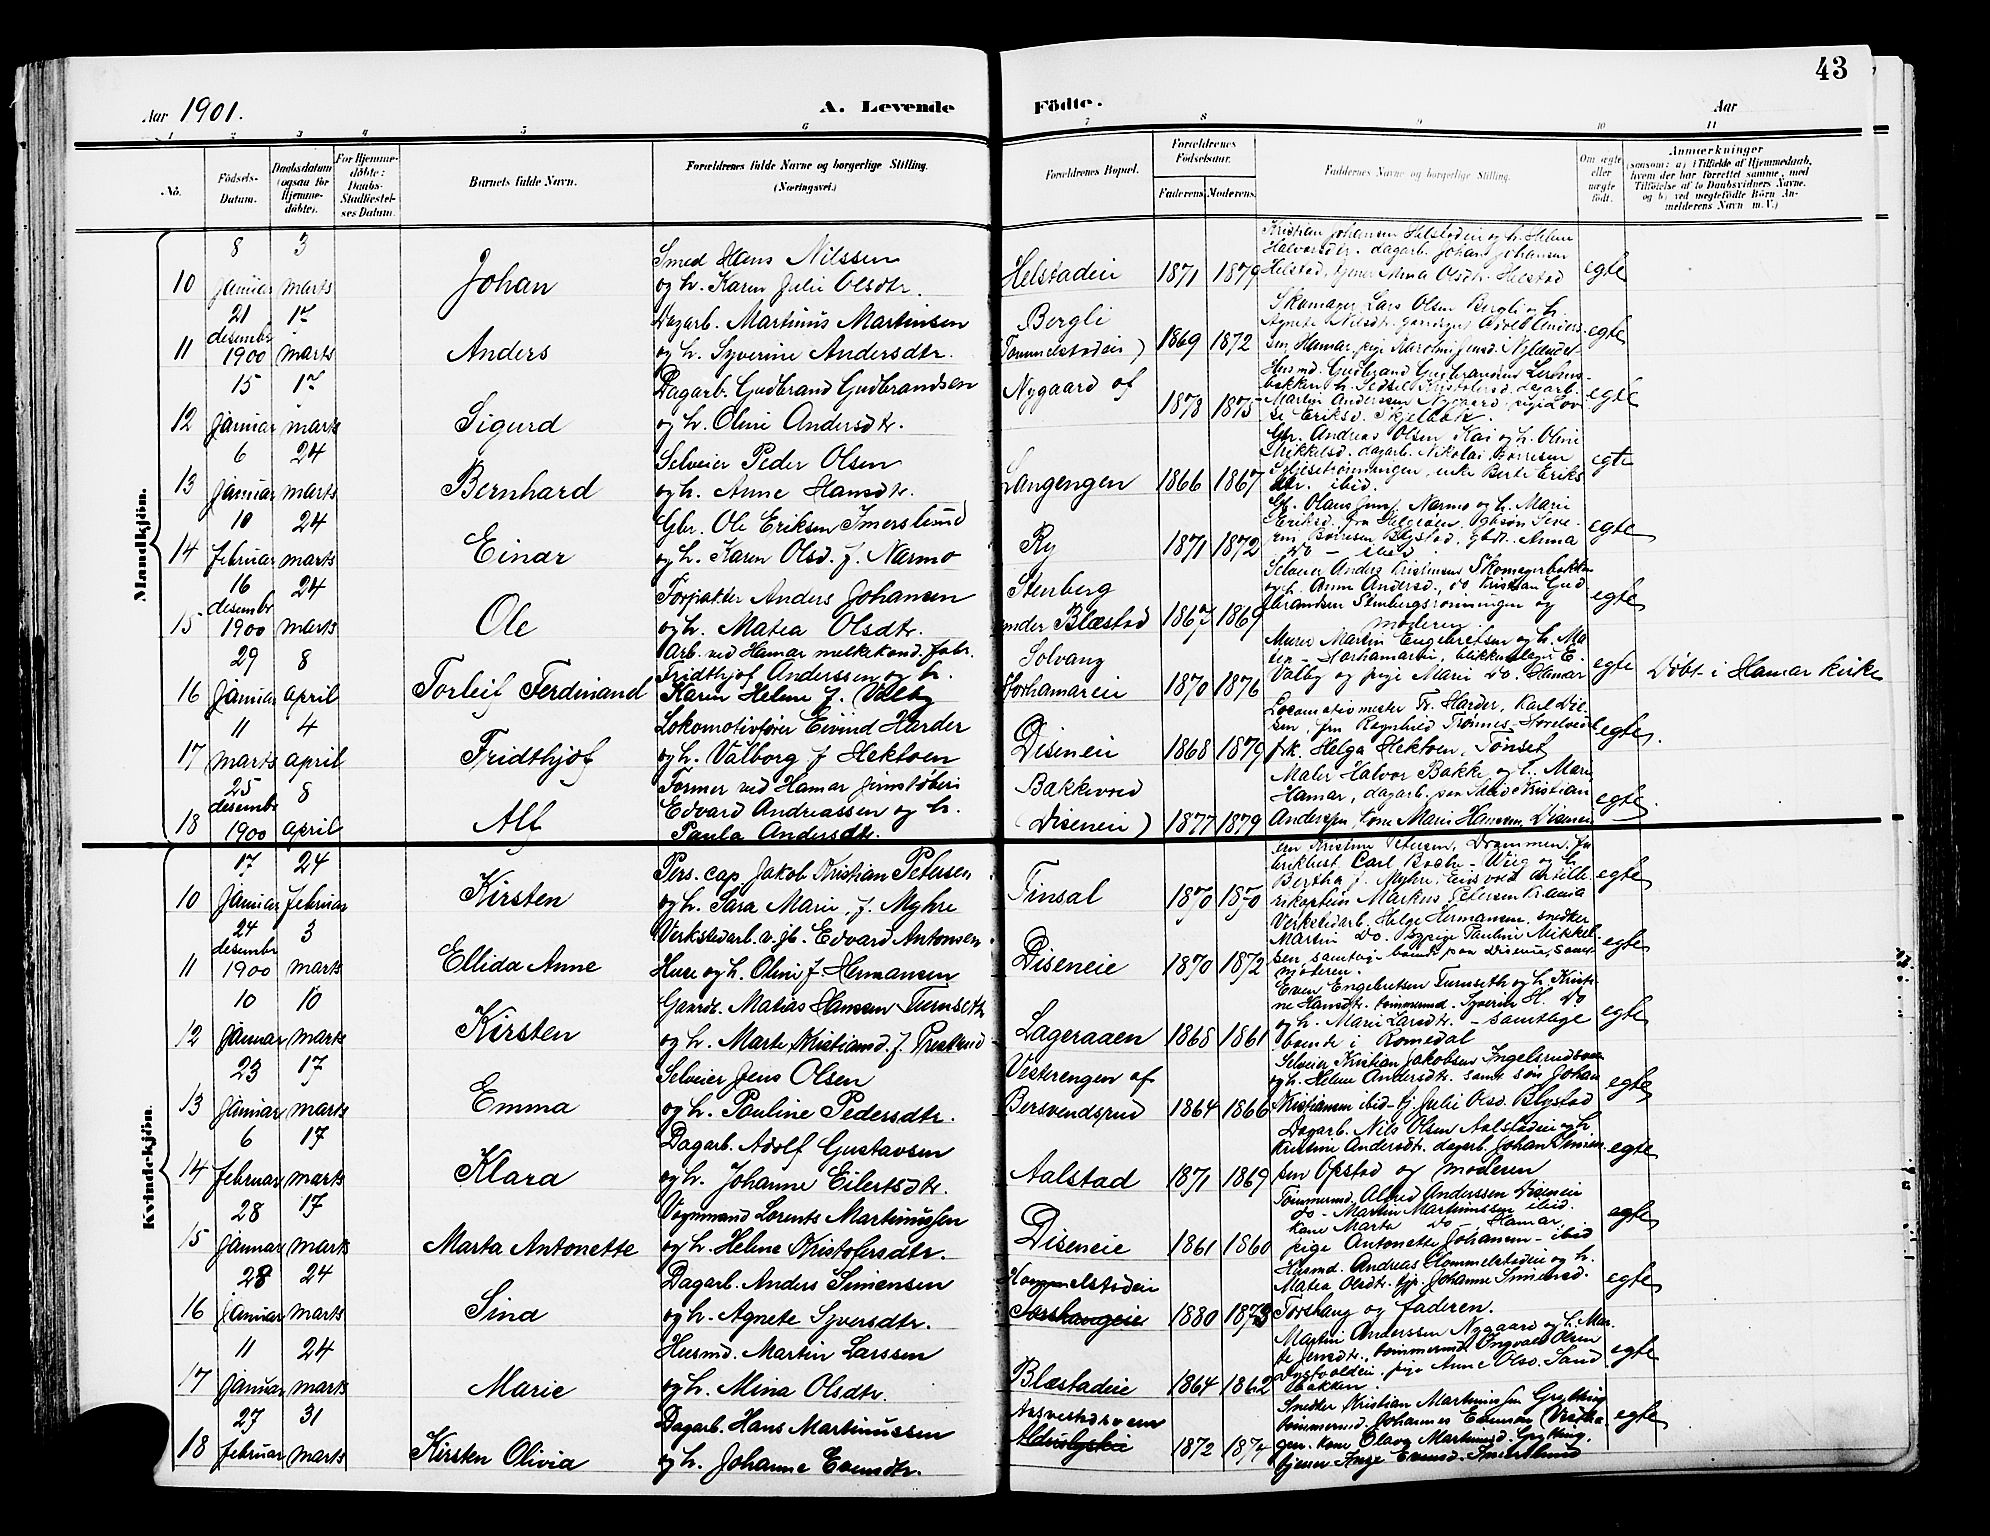 43
Aar 1901. A. Levende Födte. Aar
1 2 3 4 5 6 7 8 9 10 11
No. Födsels-Datum. Daabsdatum (ogsaa for Hjemmedöbte). For Hjemmedöbte: Daabs-Stadfestelses Datum. Barnets fulde Navn. Forældrenes fulde Navne og borgerlige Stilling. (Næringsvei.) Forældrenes Bopæl. Forældrenes Födselsaar. Faderens Moderens. Faddernes Navne og borgerlige Stilling. Om ægte eller uægte födt. Anmærkninger (saasom: a) i Tilfælde af Hjemmedaab, hvem der har forrettet samme, med Tilföielse af to Daabsvidners Navne. og b) ved uægtefödte Börn Anmelderens Navn m. V.)
Mandkjön.
10 8 januar 3 marts Johan
Smed Hans Nilssen
og h. Karen Julie Olsdtr.
Helstadeie 1871 1879
Kristian Johansen Helstadeie og h. Helene
Halvorsdtr. dagarb. Johan Johansen
Helstad, tjener Anna Olsdtr. Helstad
egte
11 21 desembr 1900 17 marts Anders
Dagarb. Martinius Martinsen
og h. Syverine Andersdtr.
Bergli
Tommelstadeie) 1869 1872
Skomager Lars Olsen Bergli og h.
Agnete Nilsdtr. Adolf Anders-
sen Hamar, pige Karoline Jensd.
egte
12 15 januar 17 marts Sigurd
Dagarb. Gudbrand Gudbrandsen
og h. Oline Andersdtr.
Nygaard af 1878 1875
Husmd. Gudbrand Gudbrandsen
bakken h. Sedsel Kristofersd. dagarb.
Martin Anderssen Nygaard, pige Lov
se Eriksd.
egte
13 6 januar 24 marts Bernhard
Selveier Peder Olsen
og h. Anne Hansdtr.
Langengen 1866 1867
Gbr. Andreas Olsen Kai og h. Oline
Mikkelsd. dagarb. Nikolai Borresen
enke Berte Eriks
dtr. ibid.
egte
14 10 februar 24 marts Einar
Gbr. Ole Eriksen Imerslund
og h. Karen Olsd. f. Narmo
Ry 1871 1872
Gb. Olaus Narmo og h. Marie
Eriksd. fra
Borresen Blystad, gbdt. Anna
Do - ibid
egte
15 16 desembr 1900 24 marts Ole
Forpakter Anders Johansen
og h. Matea Olsdtr.
Stenberg
under Blæstad 1867 1869
Selveier Anders Kristiansen Skomagerbakken
og h. Anne Andersd., do Kristian Gud
brandsen Stenbergsrønningen og
moderen.
egte
16 29 januar 8 april Torleif Ferdinand
Arb. ved Hamar melkekond. fabr.
Fridthjof Anderssen og h.
Karen Helene f. Valby
Solvang
Storhamareie 1870 1876
Murer Martin Engebretsen og h. Ma
Storhamareie, blikkenslager E.
Valby og pige Marie Do. Hamar
egte Döbt i Hamar kirke
17 11 marts 4 april Fridthjof
Lokomotivfører Eivind Harder
og h. Valborg f. Hektoen
Diseneie 1868 1879
Locomotivmester Fr. Harder, Karl
fru Ragnhild Trønnes
frk. Helga Hektoen, Tönset
egte.
18 25 desembr 1900 8 april Alf
Former ved Hamar jernstøberi
Edvard Andreassen og h.
Paula Andersdtr.
Bakkevold
(Diseneie) 1877 1879
Maler Halvor Bakke og h. Marie
Hamar, dagarb. Kristian
Anderssen, kone Marie Hanssen, Diseneie
egte.
Kvindekjön.
10 17 januar 24 februar Kirsten
Pers. cap. Jakob Kristian Petersen
og h. Sara Marie, f. Myhre
Tinsal 1870 1870
Kristine Petersen, Drammen,
Carl Boehr - Wiig og h.
Bertha f. Myhre, Eidsvold artille-
rikaptein Markus Petersen Krania
egte
11 24 desembr 1900 3 marts Ellida Anne
Verkstedarb. v. jb. Edvard Antonsen
Huse og h. Oline f. Hermansen
Diseneie 1870 1872
Verkstedarb. Helge Hermansen, snedker
Martin Do. pige Pauline Mikkel-
sen, samtlige boende paa Diseneie, samt
moderen.
egte
12 10 januar 10 marts Kirsten
Gaardr. Matias Hanssen Furuseth
og h. Marte Kristiansd. f.
Lageraaen 1868 1861
Even Engebretsen Furuseth og h. Kristi-
ne Hansdtr. tømmermd. Syver H. Do
og h. Marie Larsdtr. - samtlige
boende i Romedal
egte
13 23 januar 17 marts Emma
Selveier Jens Olsen
og h. Pauline Pedersdtr.
Vesterengen af
Bersvendsrud 1864 1866
Selveier Kristian Jakobsen
og h. Helene Andersdtr. samt søn Johan
Kristiansen ibid - tj. Julie Olsd. Blystad
egte
14 6 februar 17 marts Klara
Dagarb. Adolf Gustavsen
og h. Johanne Eilertsdtr.
Aalstad 1871 1869
Dagarb. Nils Olsen Aalstadeie og h.
Kristine Andersdtr. dagarb. Johan Simen-
sen Opstad og moderen
egte
15 28 januar 17 marts Marta Antonette
Vognmand Lorents Martinussen
og h. Helene Kristofersdtr.
Diseneie 1861 1860
Tømmermd. Alfred Anderssen Diseneie
do - Martin Martinussen ibid.
kone Marta Do Hamar,
pige Antonette Johansen - ibid
egte
16 28 januar 24 marts Sina
Dagarb. Anders Simensen
og h. Agnete Syversdtr.
Hommelstadeie
Torshaugeie 1880 1873
Husmd. Andreas Hommelstadeie og h.
Matea Olsdtr. tjp. Johanne Simensd.
Torshaug og faderen.
egte
17 11 januar 24 marts Marie
Husmd. Martin Larssen
og h. Mina Olsdtr.
Blæstadeie 1864 1862
Martin Anderssen Nygaard og h. Mar-
te Jensdtr., tømmermd. Ingvald Olsen
pige Anne Olsd. Sand
bakken.
egte
18 27 februar 31 marts Kirsten Olivia
Dagarb. Hans Martinussen
og h. Johanne Evensdtr.
1872 1874
Snedker Kristian Martinussen Grytting
tømmermd. Johannes Evensen
kone Olava Martinsd. Grytting,
tjener Inge Evensd. Imerslund
egte